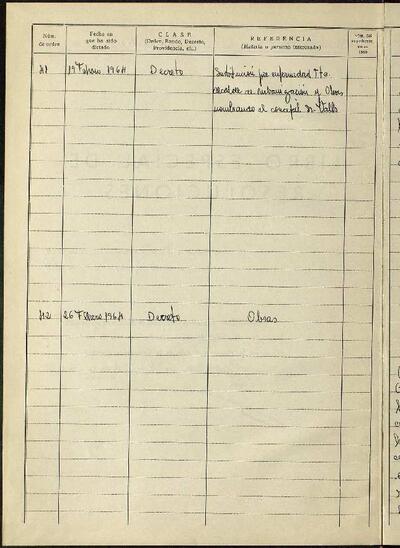 Núm. de orden
Fecha en que ha sido dictado
CLASE (Orden, Bando, Decreto, Providencia, etc.)
REFERENCIA (Materia o persona interesada)
41 19 Febrero 1964 Decreto Sustitución por enfermedad Tte.
alcalde de Urbanización y Obras
nombrando al concejal Sr. Valls
42 26 Febrero 1964 Decreto Obras